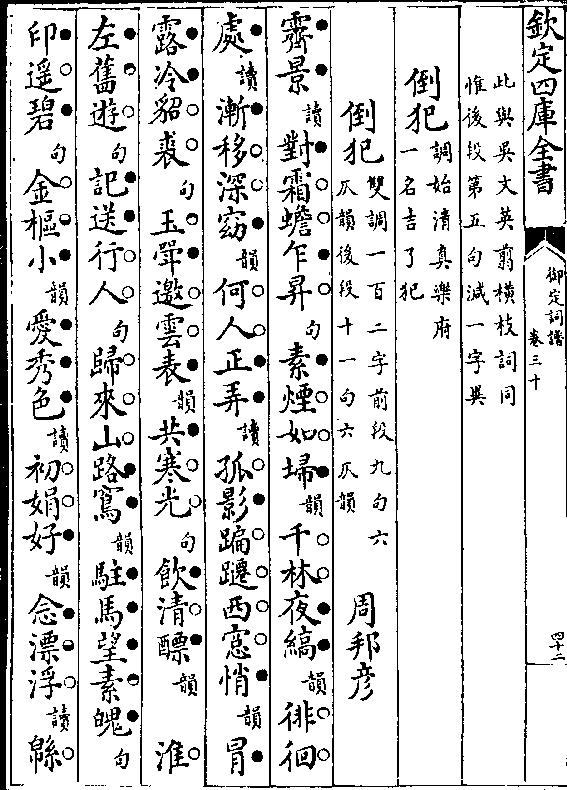 欽定四庫全書
御定詞譜
卷三十
四十二
此與吳文英剪橫枝詞同
惟後段第五句減一字異
倒犯 調始清真樂府
一名吉了犯
倒犯 雙調一百二字前段九句六
仄韻後段十一句六仄韻 周邦彥
霽景讀對霜蟾乍昇句素煙如埽韻千林夜縞韻徘徊
處讀漸移深窈韻何人正弄讀孤影蹁躚西窓悄韻冒
露冷貂裘句玉斝邀雲表韻共寒光句飲清醥韻 淮
左舊遊句記送行人句歸來山路窵韻駐馬望素魄句
印遥碧句金樞小韻愛秀色讀初娟好韻念漂浮讀緜